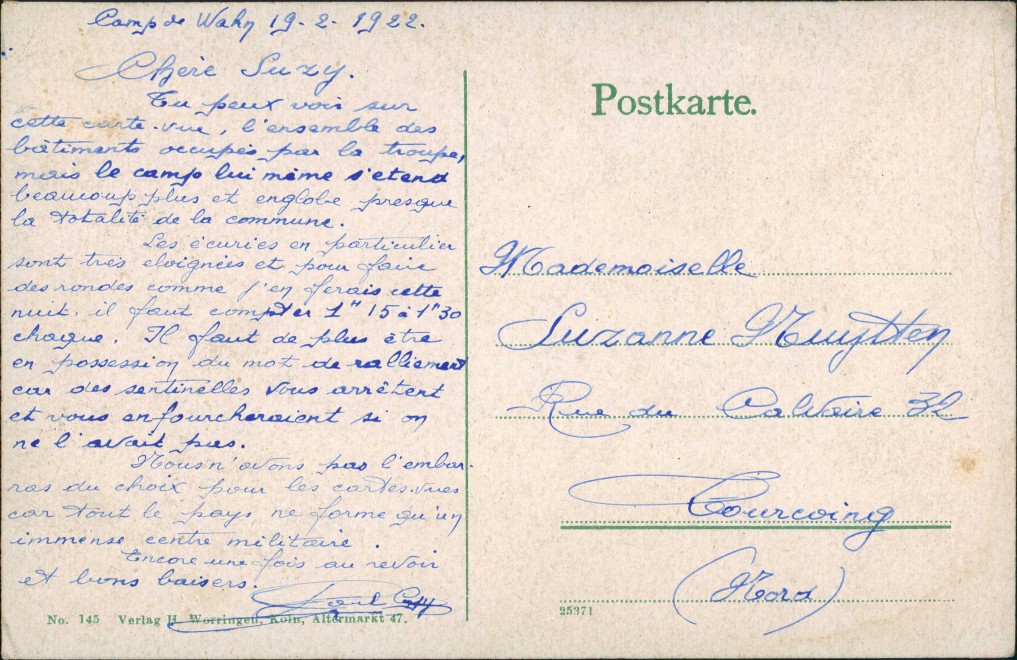 Camp de Wahn 19-2-1922.
Chère Suzy.
Tu peux voir sur
cette carte-vue, l'ensemble des
bâtiments occupés par la troupe,
mais le camp lui même s'étend
beaucoup plus et englobe presque
la totalité de la commune.
Les écuries en particulier
sont très eloignées et pour faire
des rondes comme j'en ferais cette
nuit, il faut compter 1h 15 à 1h30
chaque. Il faut de plus être
en possession du mot de ralliement
car des sentinelles vous arrêtent
et vous enfourcheraient si on
ne l'avait pas.
Nous n'avons pas l'embar-
ras du choix pour les cartes-vues
car tout le pays ne forme qu'un
immense centre militaire.
Encore une fois au revoir
et bons baisers.
Paul
No. 145 Verlag H. Worringen, Köln, Altermarkt 47.
Postkarte.
Mademoiselle
Suzanne Nuytten
Rue du Calvaire 32
Tourcoing
(Nord)
25371